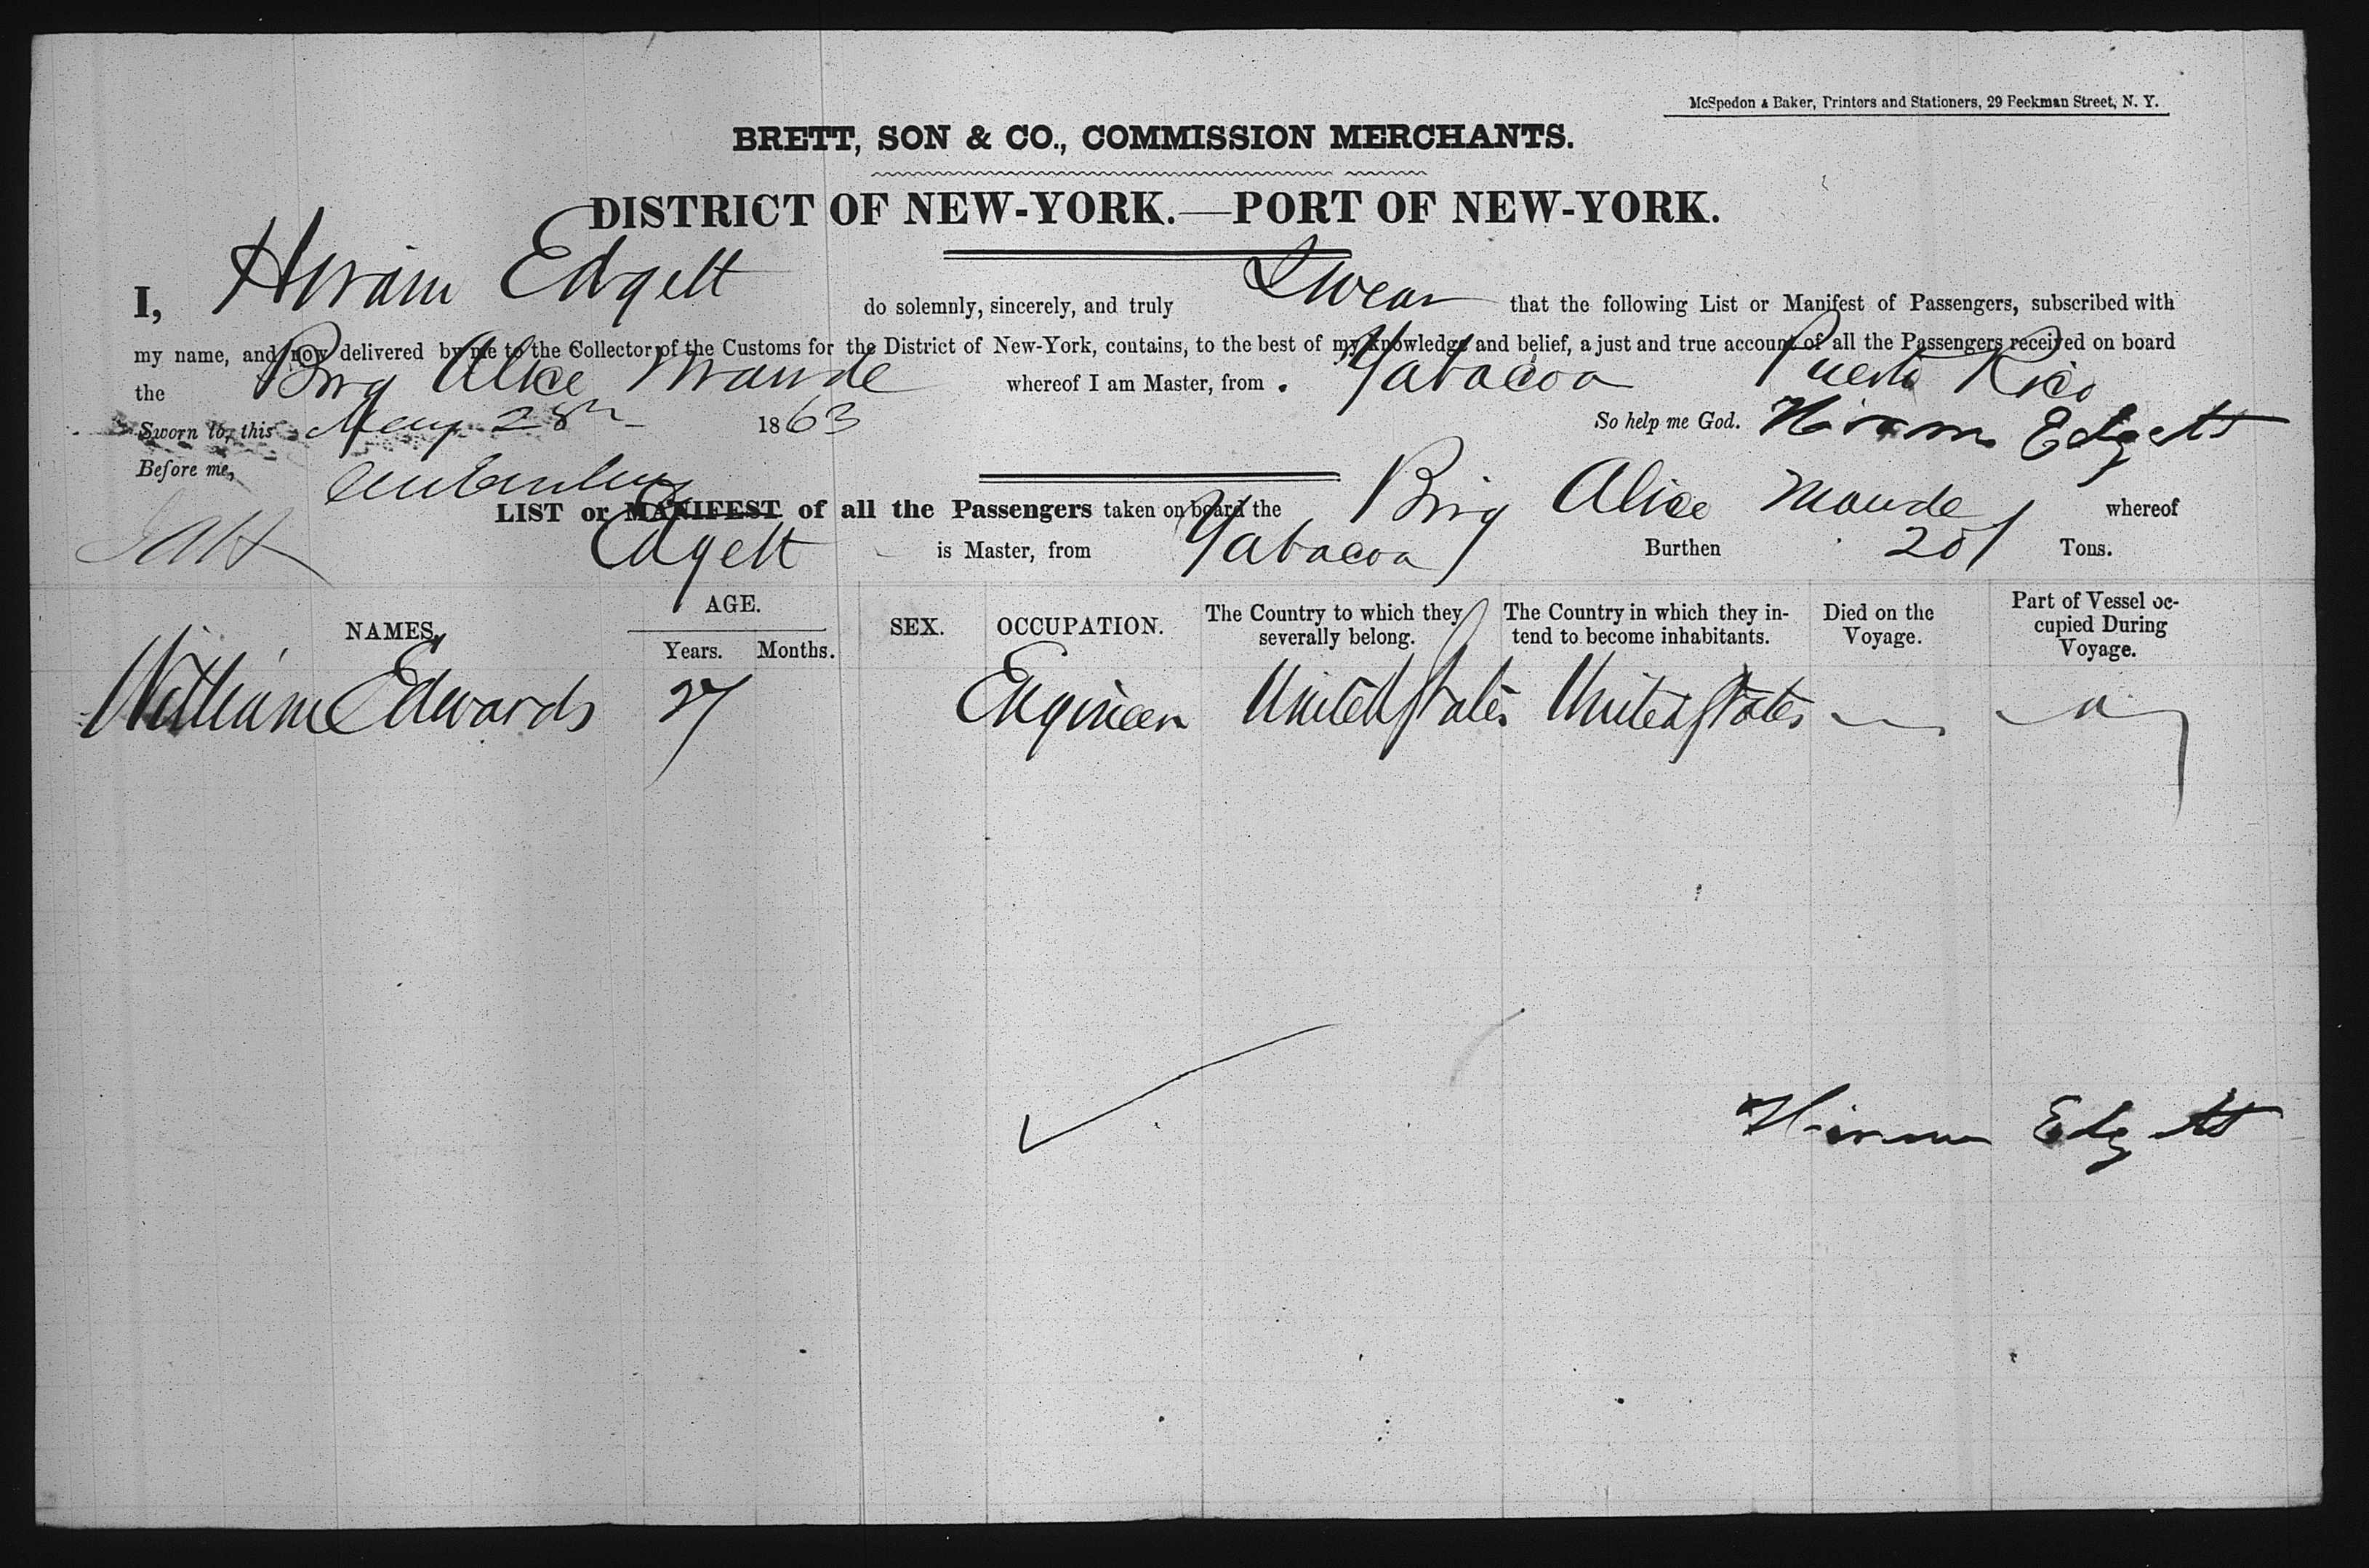 McSpedon & Baker, Printers and Stationers, 29 Beekman Street, N. Y.
BRETT, SON & CO., COMMISSION MERCHANTS.
DISTRICT OF NEW-YORK.—PORT OF NEW-YORK.
I, Hiram Edgett do solemnly, sincerely, and truly Swear that the following List or Manifest of Passengers, subscribed with
my name, and now delivered by me to the Collector of the Customs for the District of New-York, contains, to the best of my knowledge and belief, a just and true account of all the Passengers received on board
the Brig Alice Maude whereof I am Master, from Yabacoa Puerto Rico
Sworn to, this May 28th 1863 So help me God. Hiram Edgett
Before me,
LIST or MANIFEST of all the Passengers taken on board the Brig Alice Maude whereof
Edgett is Master, from Yabacoa Burthen 201 Tons.
NAMES. AGE. Years. Months. SEX. OCCUPATION. The Country to which they severally belong. The Country in which they intend to become inhabitants. Died on the Voyage. Part of Vessel occupied During Voyage.
William Edwards 27 Engineer United States United States
Hiram Edgett